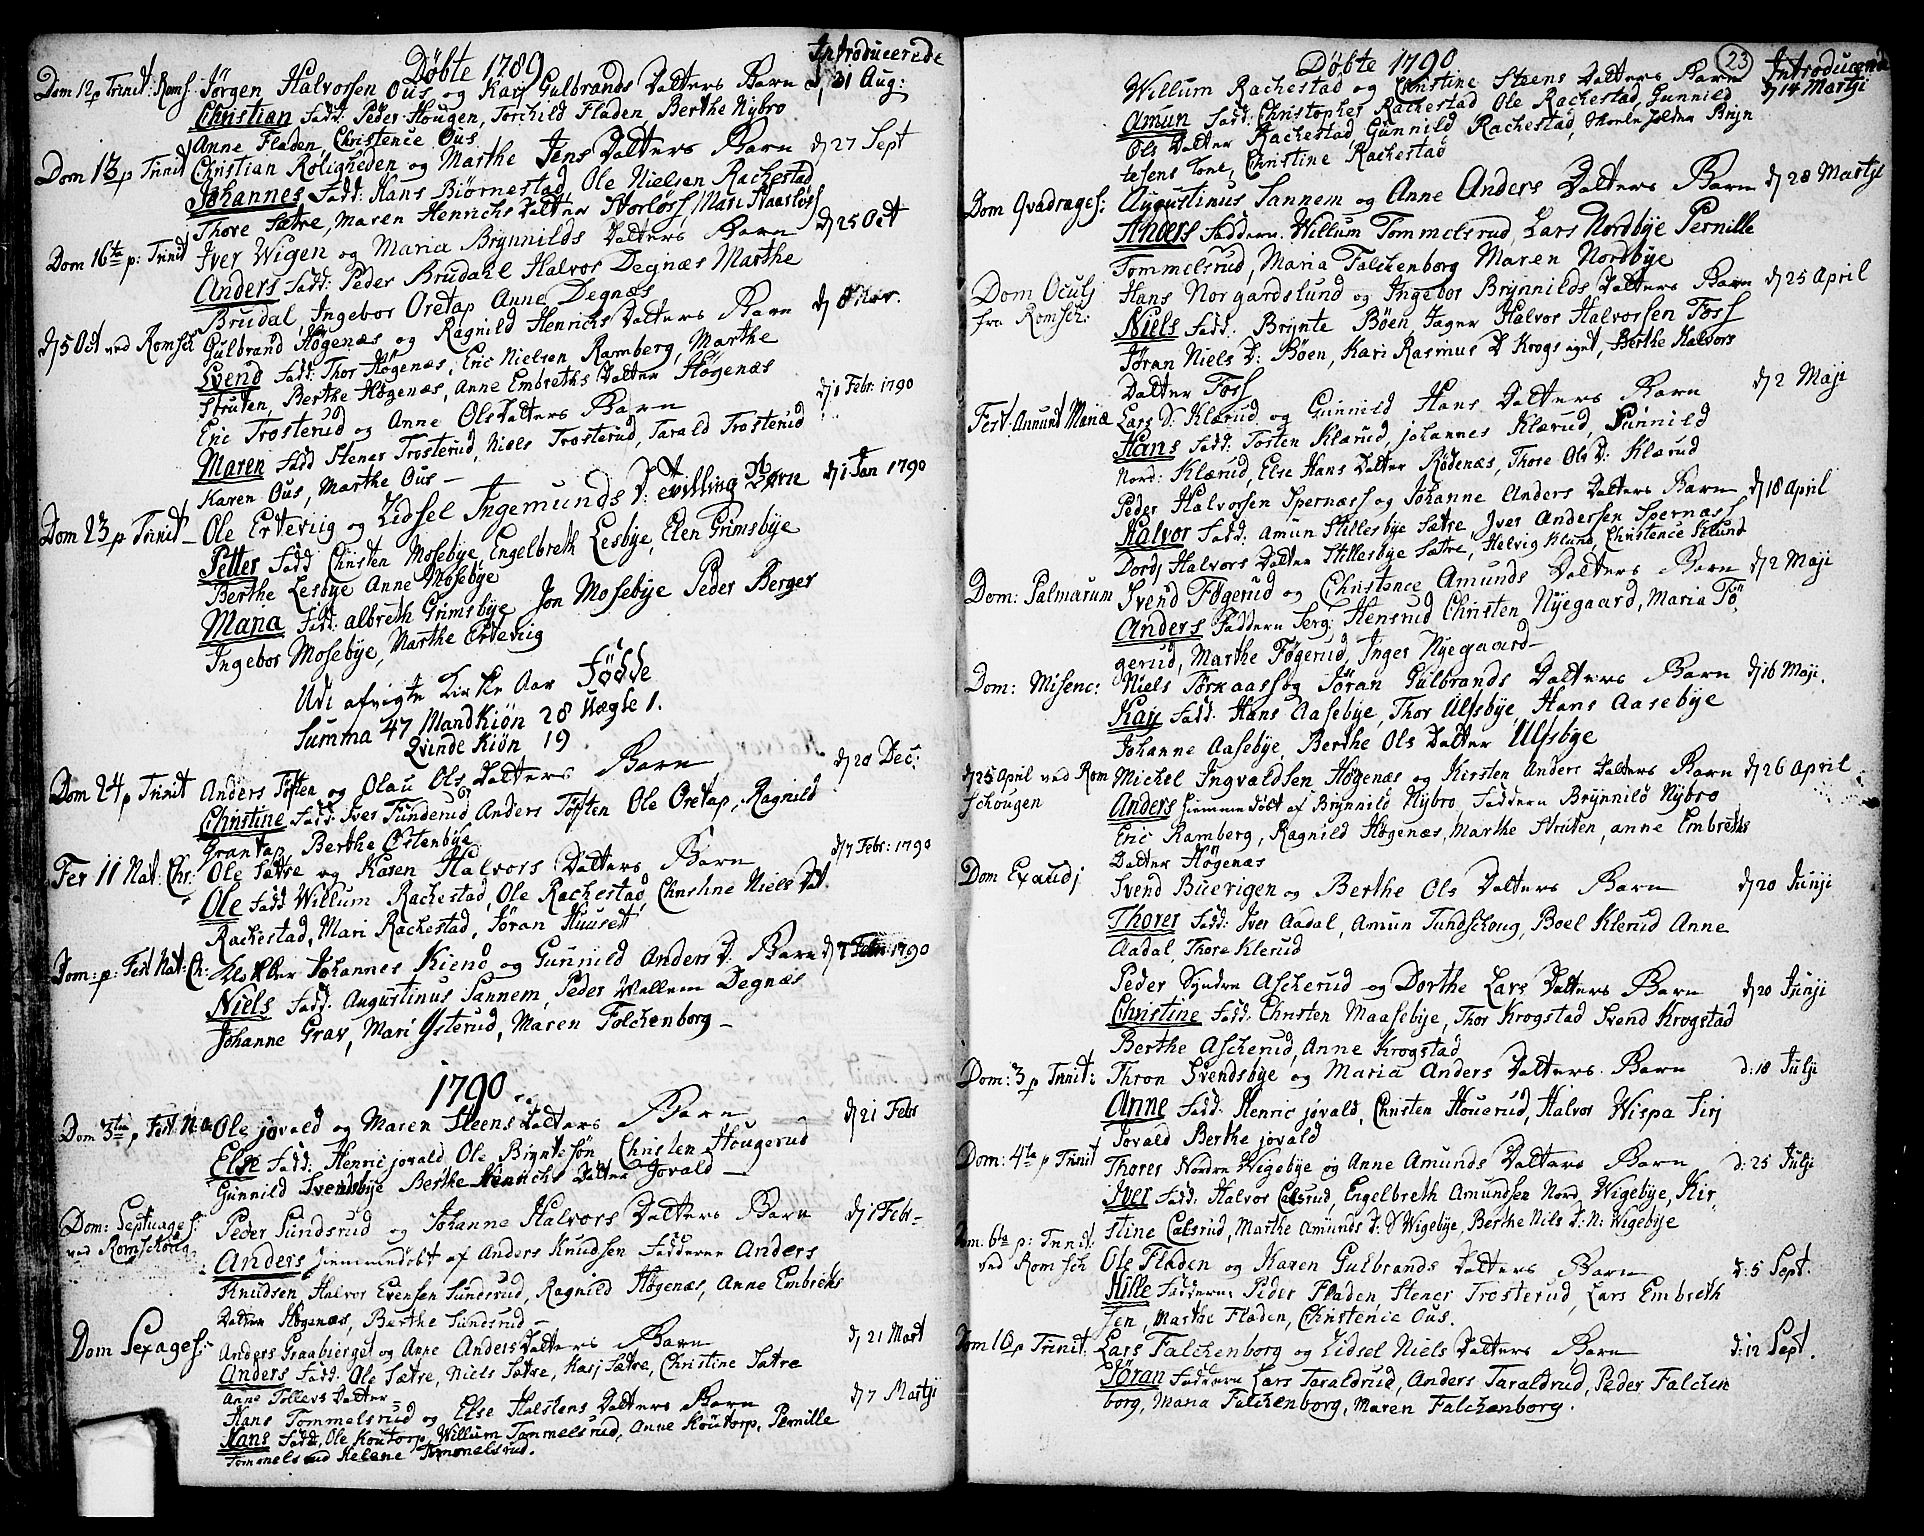 Døbte 1789
Introducerede
Dom 12 p Trinit: Roms. Jørgen Halvorssen Ous og Kari Gulbrands Datters Barn d 31 Aug:
Christian Fadd: Peder Hougen, Torchild Fladen, Berthe Nybro
Anne Fladen, Christence Ous
Dom 13 p Trinit Christian Roligheden og Marthe Jens Datters Barn d 27 Sept
Johannes Fadd: Hans Biørnestad, Ole Nielsen Rachestad
Thore Sætre, Maren Henrichs Datter Storløss, Mari Haasløss
Dom 16te p: Trinit Iver Wigen og Maria Brynnilds Datters Barn d 25 Oct
Anders Fadd: Peder Brudahl Halvor Degnæs Marthe
Brudal, Ingebor Oretap Anne Degnæs
d 5 Oct ved Romsch Gulbrand Høgenæs og Ragnild Henrichs Datters Barn d 8 Nov.
Svend Fadd: Thor Høgenæs, Eric Nielsen Ramberg, Marthe
Struten, Berthe Høgenæs, Anne Embreths Datter Høgenæs
Eric Trosterud og Anne Ols Datters Barn d 1 Febr. 1790
Maren Fadd Stener Trosterud, Niels Trosterud, Tarald Trosterud
Karen Ous, Marthe Ous
Dom 23 p Trinit Ole Erteviig og Lidsel Ingemunds D: tvilling Børn d 1 Jan 1790
Petter Fadd Christen Mosebye, Engelbreth Lesbye, Elen Grimsbye
Berthe Lesbye Anne Mosebye
Maria Fadd: albreth Grimsbye Jon Mosebye Peder Berger
Ingebor Mosebye, Marthe Erteviig
Udi afvigte Kirke Aar Fødde
Summa 47 Mandkiøn 28 Uægte 1.
Qvinde Kiøn 19
Dom 24 p Trinit Anders Toften og Olau Ols Datters Barn d 20 Dec:
Christine Fadd: Iver Tunderud, Anders Toften Ole Oretap, Ragnild
Grantap Berthe Østenbye
Fer II Nat: Chr: Ole Sætre og Karen Halvors Datters Barn d 7 Febr: 1790
Ole Fadd Willum Rachestad, Ole Rachestad, Christine Niels Dat.
Rachestad, Mari Rachestad, Jøran Huusett
Dom: p: Fest Nat: Ch: Klokker Johannes Kiend og Gunnild Anders D: Barn d 7 Febr: 1790
Niels Fadd: Augustinus Sannem, Peder Wallem Degnæs
Johanne Grav, Mari Ysterud, Maren Falchenborg
1790
Dom 3tia p Fest: N: a Ole jovald og Maren Steens Datters Barn d 21 Febr
Else Fadd: Henric jovald Ole Bryntesøn Christen Hougerud
Gunnild Svendsbye Berthe Henrichs Datter Jovald
Dom: Septuages: Peder Sundsrud og Johanne Halvors Datters Barn d 1 Febr
ved Romschoug
Anders hiemmedøbt af Anders Knudsen Fadderne Anders
Knudsen, Halvor Evensen Sundsrud, Ragnild Høgenæs, Anne Embreths
Datter Høgenæs, Berthe Sundsrud
Dom Sexages: Anders Graabierget og Anne Anders Datters Barn d 21 Mart
Anders Fadd: Ole Sætre, Niels Sætre, Karj Sætre, Christine Sætre
Anne Tollers Datter
Hans Tommelsrud og Else Halstens Datters Barn d 7 Martji
Hans Fadd, Ole Koutorp, Willum Tommelsrud, Anne Koutorp, Pernille
Tommelsrud Helene Tommelsrud.
Døbte 1790
23
Introducerede
Willum Rachestad og Christine Steens Datters Barn d 14 Martji
Amun Fadd: Christopher Rachestad Ole Rachestad, Gunnild
Ols Datter Rachestad, Gunnild Rachestad, Bryn
tesens Tone, Christine Rachestad
Dom Qvadrages: Augustinus Sannem og Anne Anders Datters Barn d 28 Martji
Anders Faddern. Willum Tommelsrud, Lars Nordbye Pernille
Tommelsrud, Maria Falchenborg Maren Nordbye
Dom Oculj Hans Norgardslund og Ingebor Brynnilds Datters Barn d 25 April
fra Romsch:
Niels Fadd: Brynte Bøen, Jager Halvor Halvorssen Foss
Jøran Niels D: Bøen, Kari Rasmus D Krogsæget, Berthe Halvors
Datter Foss
Fest: Annunt Mariæ Lars S. Klærud og Gunnild Hans Datters Barn d 2 Maji
Hans Fadd: Tosten Klærud, johannes Klærud, Gunnild
Nord: Klærud, Else Hans Datter Rødenæs, Thore Ols D: Klærud
Peder Halvorssen Spernæss og Johanne Anders Datters Barn d 18 April
Halvor Fadd: Amun Stillesbye Sætre Iver Andersen Spernæss
Dordj Halvors Datter Stillesbye Sætre, Helvig Klund, Christence Klund
Dom: Palmarum Svend Føgerud og Christence Amunds Datters Barn d 2 Maji
Anders Faddern Serg: Hensrud Christen Nyegaard, Maria Fø
gerud, Marthe Føgerud, Inger Nyegaard
Dom: Misenc: Niels Torkaas og Jøran Gulbrands Datters Barn d 16 Maji.
Kay Fadd: Hans Aasebye, Thor Ulfsbye Hans Aasebye
Johanne Aasebye Berthe Ols Datter Ulfsbye
d 25 April ved Rom Michel Ingvaldsen Høgenæs og Kirsten Anders Datters Barn d 26 April
schougen
Anders hiemmedøbt af Brynnild Nybro Faddern Brynnild Nybro
Eric Ramberg, Ragnild Høgenæs, Marthe Struten, anne Embreths
Datter Høgenæs
Dom Exaudj Svend Buerigen og Berthe Ols Datters Barn d 20 Junji
Thorer Fadd: Iver Aadal, Amun Tundschoug, Boel Klerud Anne
Aadal, Thore Klerud
Peder Syndre Ascherud og Dorthe Lars Datters Barn d 20 Junji
Christine Fadd: Christen Maasebye, Thor Krogstad Svend Krogstad
Berthe Ascherud, Anne Krogstad
Dom: 3 p Trinit: Thron Svendsbye og Maria Anders Datters Barn d: 18 Julji
Anne Fadd: Henric jovald, Christen Houerud, Halvor Wispa Sirj
Jovald Berthe jovald
Dom: 4ta p Trinit Thorer Nordre Wigebye og Anne Amunds Datters Barn d: 25 Julji
Iver Fadd: Halvor Calsrud, Engelbreth Amundsen Nord, Wigebye, Kir,
stine Calsrud, Marthe Amunds D: S Wigebye, Berthe Nils D: N: Wigebye
Dom. 6ta p: Trinit: Ole Fladen og Karen Gulbrands Datters Barn d: 5 Sept.
ved Romsch
Hille Fadderne Peder Fladen Stener Trosterud, Lars Embreth
sen, Marthe Fladen, Christence Ous.
Dom 10 p Trinit: Lars Falchenborg og Lidsel Niels Datters Barn d: 12 Sept.
Jøran Faddern Lars Taraldrud, Anders Taraldrud, Peder Falchen
borg, Maria Falchenborg, Maren Falchenborg.